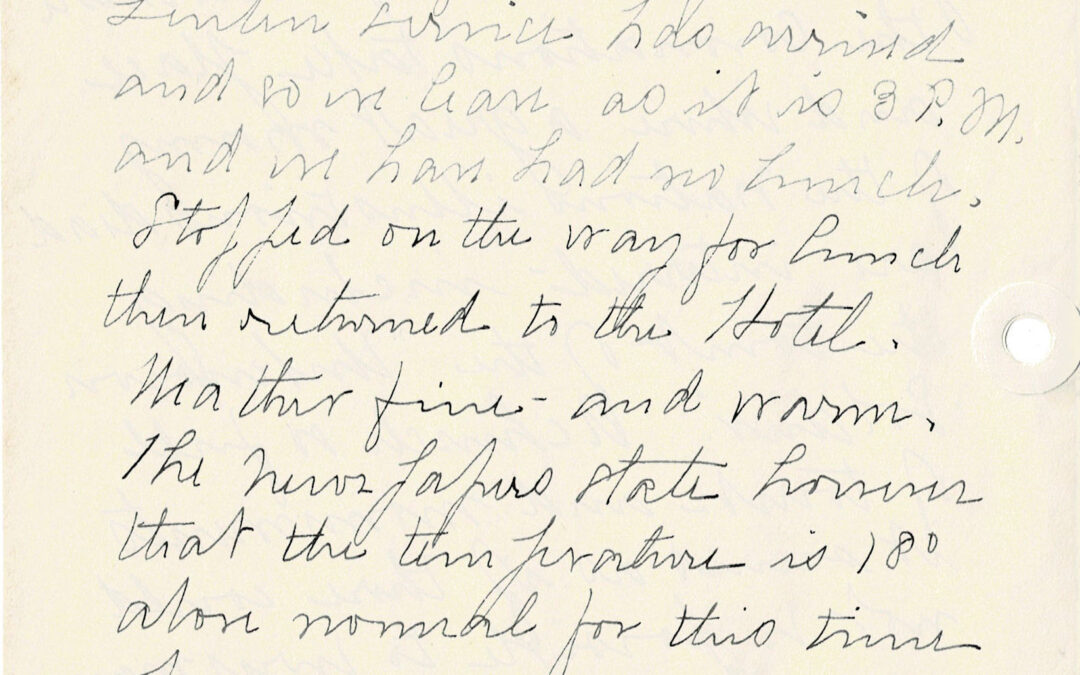 service has arrived
and so we leave as it is 3 P.M.
and we have had no lunch.
Stopped on the way for lunch
then returned to the Hotel.
Weather fine - and warm.
The newspapers state however
that the temperature is 18°
above normal for this time